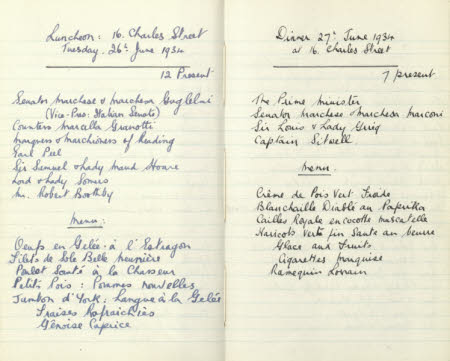 Luncheon: 16. Charles Street
Tuesday. 26th June 1934
12 Present
Senator Marchese & Marchesa Guglielmi
(Vice-Pres: Italian Senate)
Countess Marcella
Marquess & Marchioness of Reading
Earl Peel
Sir Samuel & Lady Maud Hoare
Lord & Lady Somers
Mr. Robert Boothby
Menu:
Oeufs en Gelée à l'Estragon
Filets de Sole Belle Meunière
Poulet Sauté à la Chasseur
Petits Pois: Pommes nouvelles
Jambon d'York: Langue à la Gelée
Fraises Rafraichies
Génoise Caprice
Dinner 27th June 1934
at 16. Charles Street
7 present
The Prime Minister
Senator Marchese & Marchesa Marconi
Sir Louis & Lady Greig
Captain Sitwell
Menu
Crême de Pois Vert Froide
Blanchaille Diablé au Paprika
Cailles Royale en cocotte muscatelle
Haricots Verts fin Sauté au beurre
Glace and Fruits
Cigarettes
Ramequin Lorrain